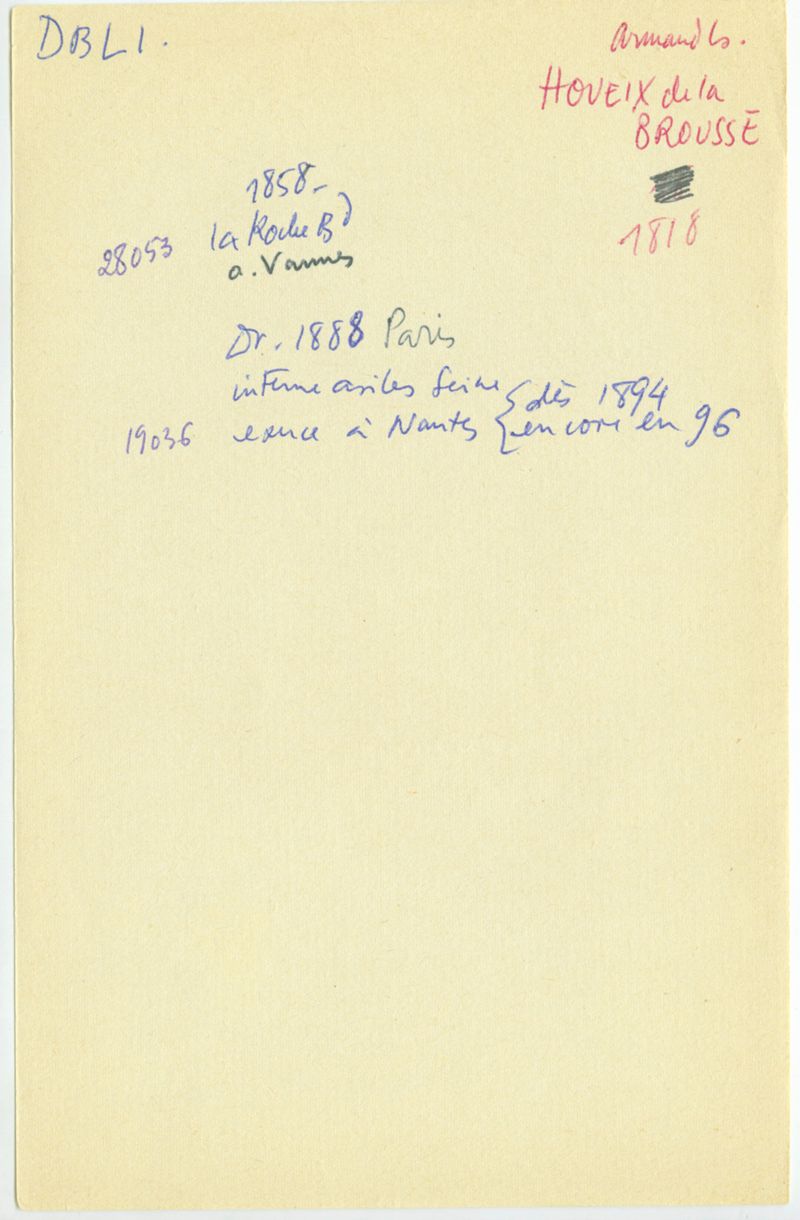 DBL1.
Armand Ls.
HOUEIX de la
BROUSSE
1818
1858-
28053 la Roche Bd
a. Vannes
Dr. 1888 Paris
interne asiles Seine { dès 1894
19036 exerce à Nantes { encore en 96